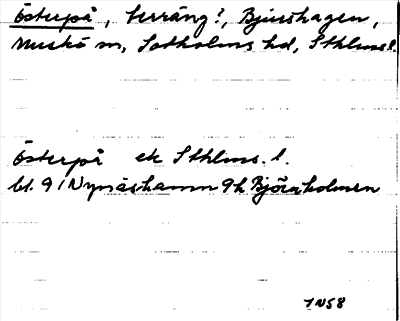 Österpå, terräng?, Björshagen,
Muskö sn, Sotholms hd, Sthlms l.
Österpå ek Sthlms. l.
bl. 9 i Nynäshamn 9h Björnholmen
1N58